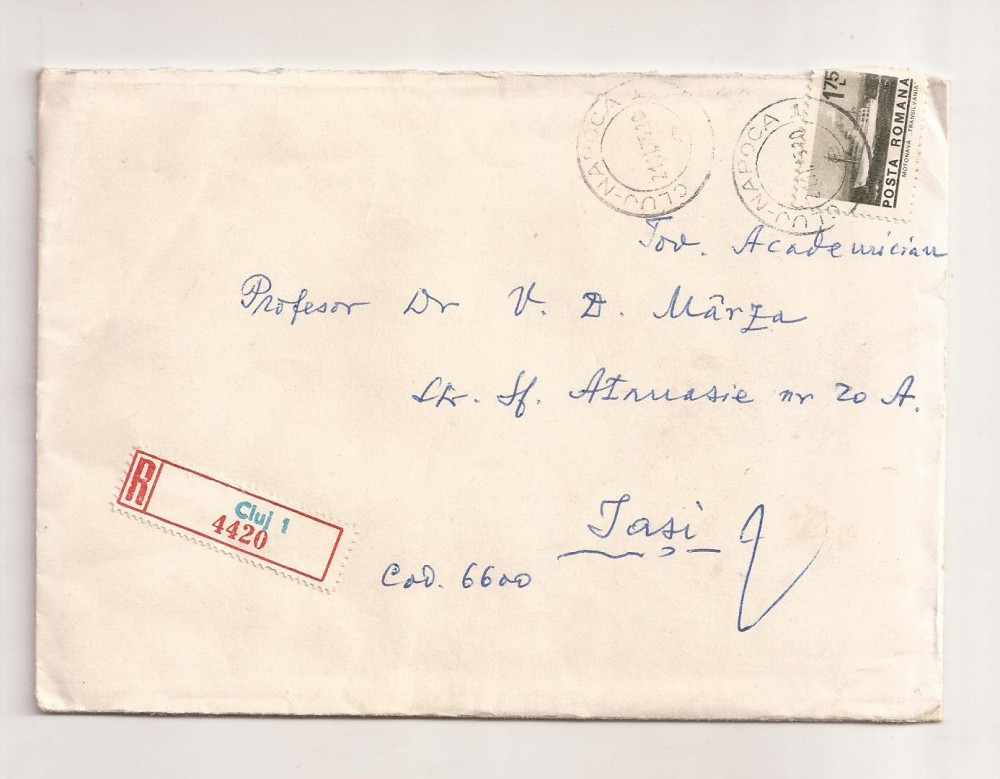 175 L
POSTA ROMANA
MOTONAVA "TRANSILVANIA"
CLUJ-NAPOCA
CLUJ-NAPOCA
Tov. Academician
Profesor Dr V. D. Mârza
Str. Sf. Atanasie nr 20 A.
Iași
Cod. 6600
R
Cluj 1
4420